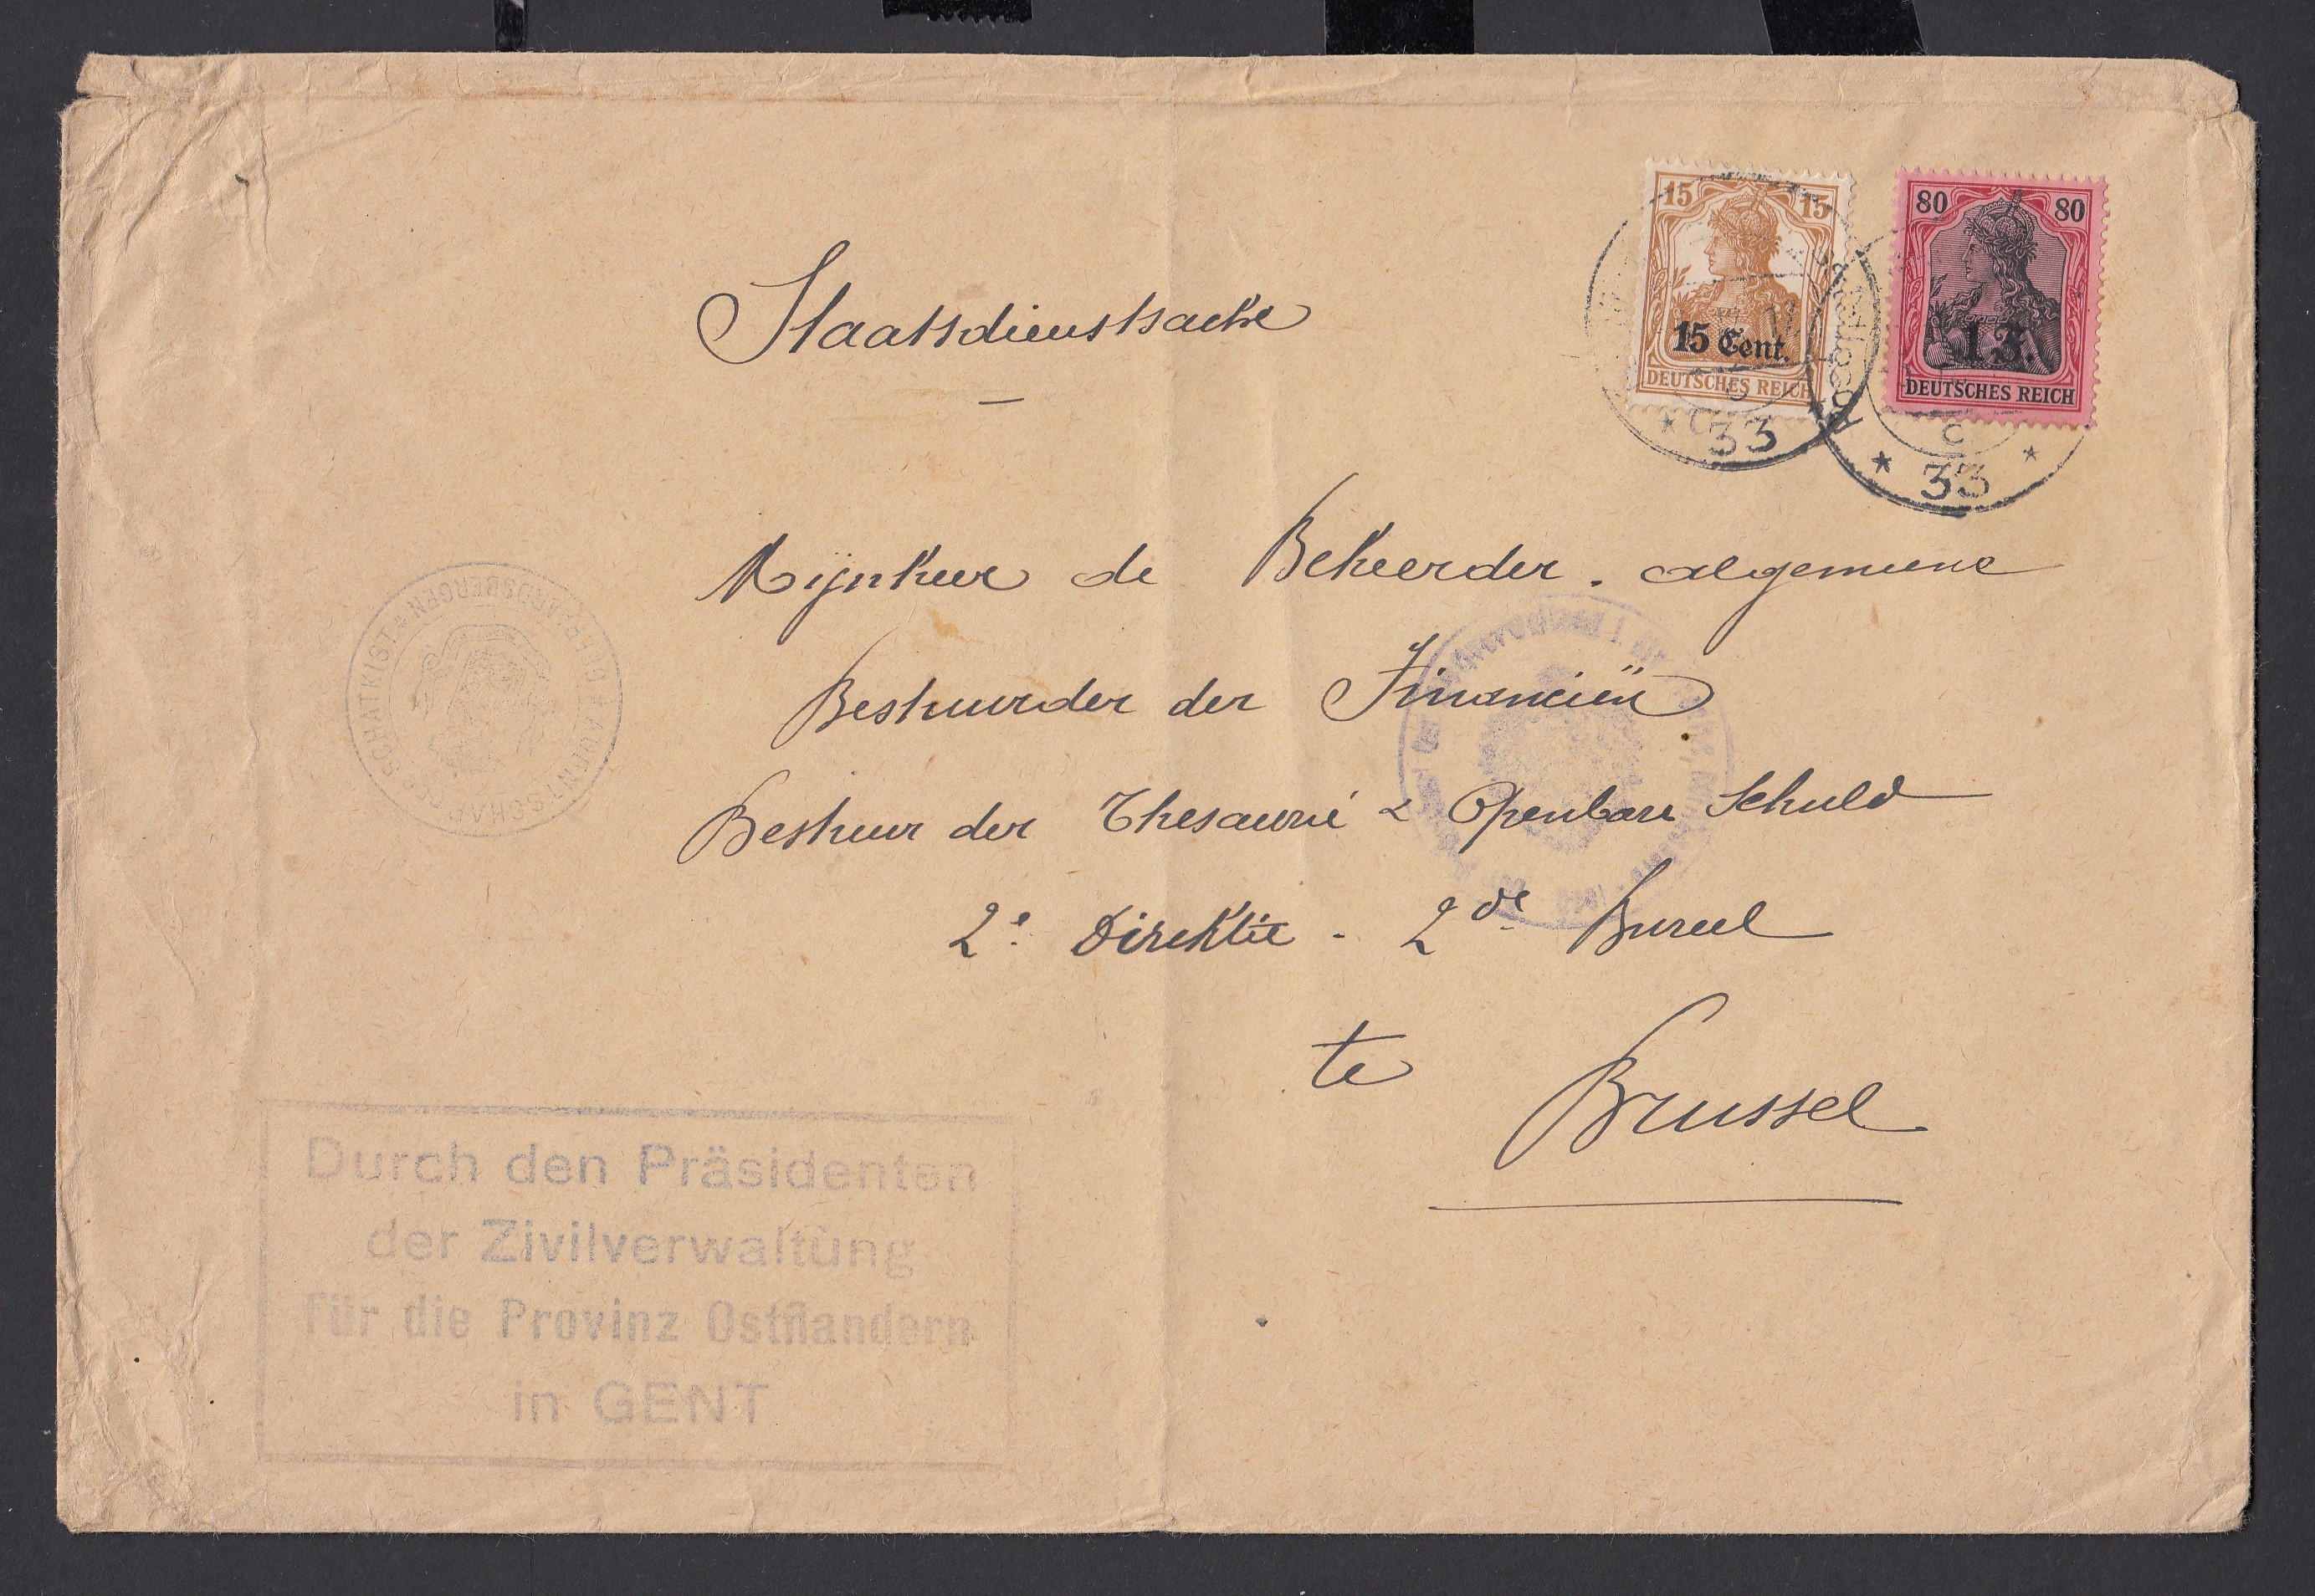 15 15
15 Cent.
DEUTSCHES REICH
80 80
1 F.
DEUTSCHES REICH
* C 33
c
* 33 *
Staatsdienstsache
Mijnheer de Beheerder. algemeene
Bestuurder der Financiën
Bestuur der Thesaurie & Openbare Schuld
2e Direktie - 2de Bureel
te
Brussel
AGENTSCHAP DER SCHATKIST * GEERAARDSBERGEN *
Durch den Präsidenten
der Zivilverwaltung
für die Provinz Ostflandern
in GENT